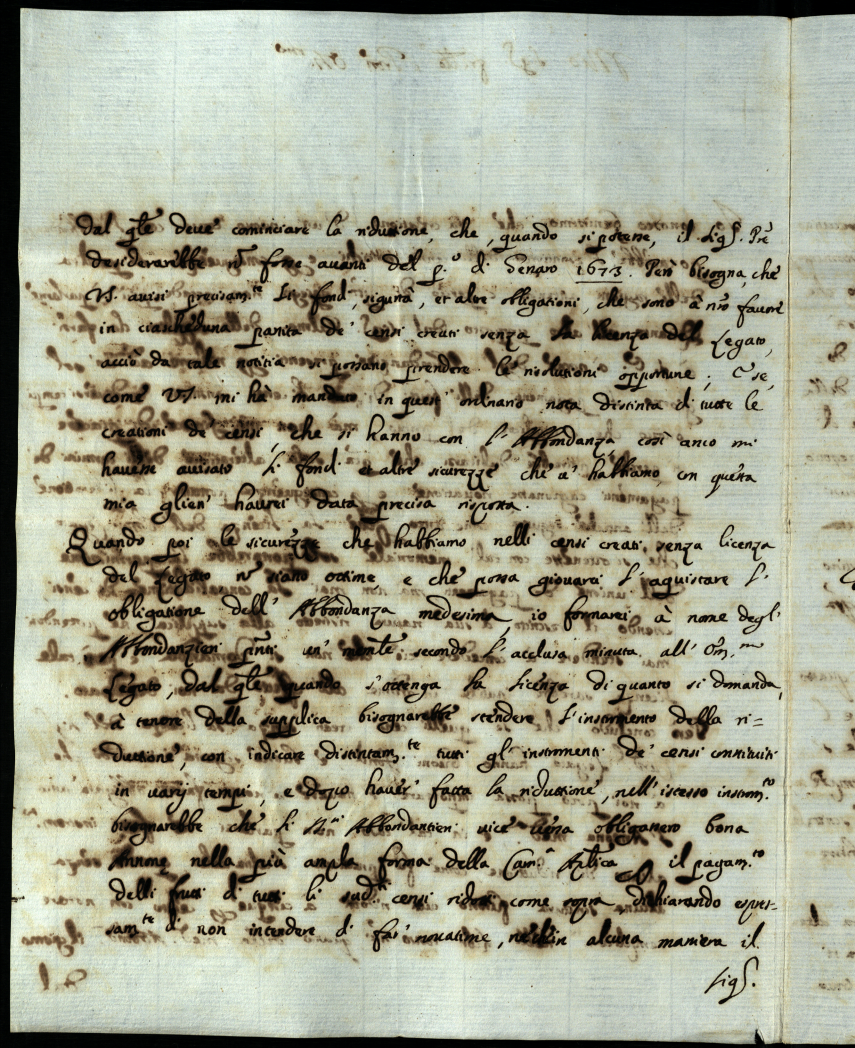 dal qle deve cominciare la riduttione, che, quando si potesse, il Sigr. Pre
desiderarebbe nō fosse avanti del p.º di Genaro 1673. Però bisogna, che
VS. avisi precisam.te li fondi, sigurtà, et altre obligationi, che sono à nro favore
in ciascheduna partita de' censi creati senza la licenza del Legato,
acciò da tale notitia si possano prendere le risolutioni opportune; E se,
come VS. mi hà mandato in quest' ordinario nota distinta di tutte le
creationi de' censi, che si hanno con l' Abbondanza così anco mi
havesse avisato li fondi et altre sicurezze che v' habbiamo, con questa
mia glien' haverei data precisa risposta.
Quando poi le sicurezze che habbiamo nelli censi creati senza licenza
del Legato nō siano ottime, e che possa giovarci l' aquistare l'
obligatione dell' Abbondanza medesima, io formarei à nome degl'
Abbondanzieri pñti un' mem̃le secondo l' acclusa minuta all' Em.mo
Legato, dal qle quando s' ottenga la licenza di quanto si domanda,
à tenore della supplica bisognarebbe stendere l' instromento della ri=
duttione, con indicare distintam.te tutti gl' instromenti de' censi constituiti
in varij tempi, e dopo haver' fatta la riduttione, nell' istesso instrom.to
bisognarebbe che li Abbondantieri vice versa obligassero bona
Annonæ nella più ampla forma della Cam.ª Aplica il pagam.to
delli frutti di tutti li sud.ti censi ridotti come sopra dichiarando espres-
sam.te di non intendere di far' novatione, ne in alcuna maniera il
Sigr.